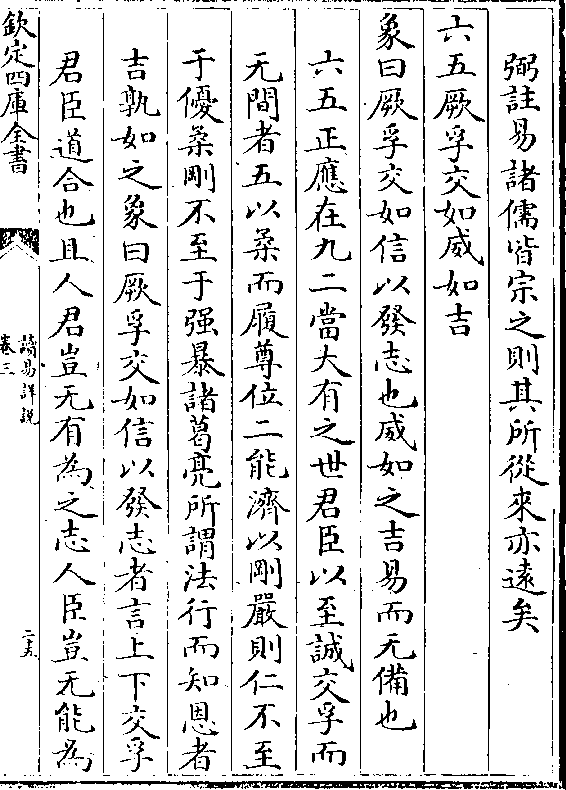 弼註易諸儒皆宗之則其所從來亦遠矣
六五厥孚交如威如吉
象曰厥孚交如信以發志也威如之吉易而无備也
六五正應在九二當大有之世君臣以至誠交孚而
无間者五以柔而履尊位二能濟以剛嚴則仁不至
于優柔剛不至于强暴諸葛亮所謂法行而知恩者
吉孰如之象曰厥孚交如信以發志者言上下交孚
君臣道合也且人君豈无有為之志人臣豈无能為
欽定四庫全書
讀易詳說
卷三
二五